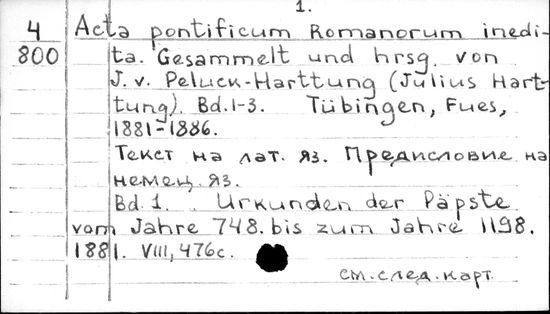 1.
4 Acta pontificum Romanorum inedi-
800 ta. Gesammelt und hrsg. von
J. v. Peluck-Harttung (Julius Hart-
tung). Bd. 1-3. Tübingen, Fues,
1881-1886.
Текст на лат. яз. Предисловие на
немец. яз.
Bd. 1. Urkunden der Päpste
vom Jahre 748. bis zum Jahre 1198.
1881. VIII, 476c.
см. след. карт.